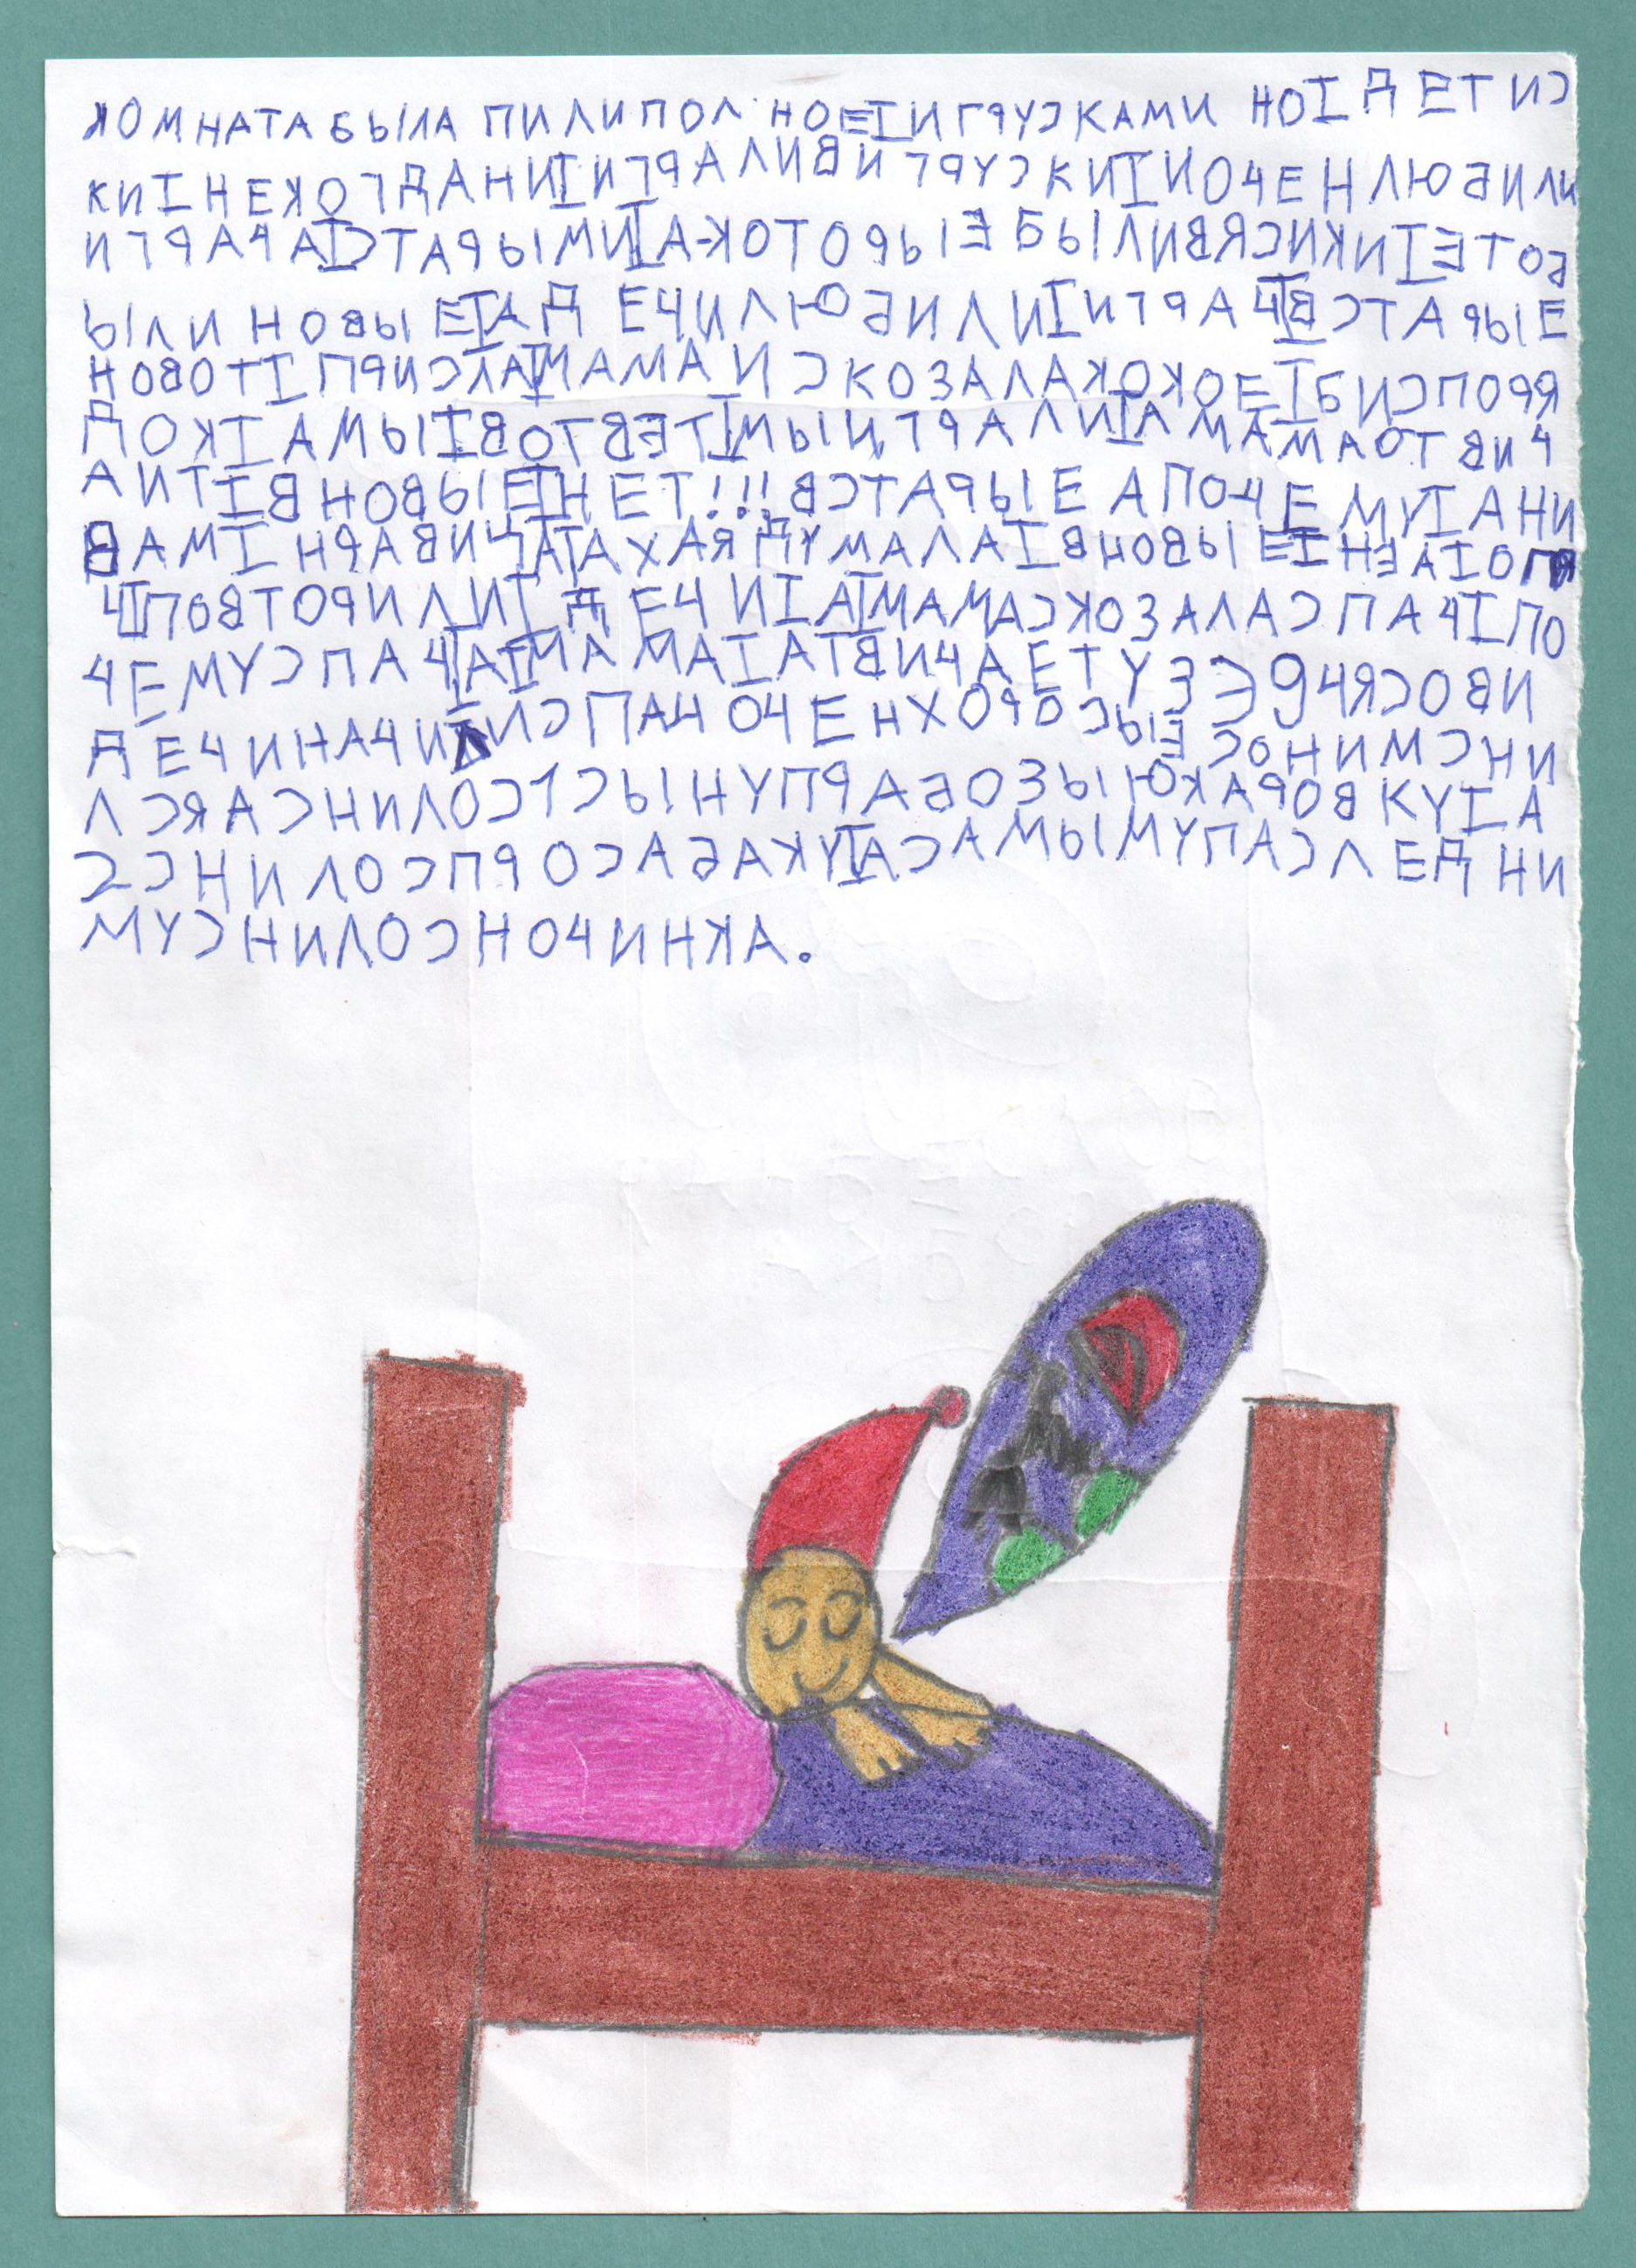 КОМНАТАБЫЛА ПИЛИПОЛ НОЕIИГРУСКАМИ НОIДЕТИС
КИIНЕКОГДАНИIИГРАЛИВИГРУСКИIИОЧЕНЛЮБИЛИ
ИГРАЧАIСТАРЫМИIА-КОТОРЫЕ БЫЛИВЯСИКИIЕТОБ
ЫЛИ НОВЫЕIАД ЕЧИЛЮБИЛИIИГРАЧIВСТАРЫЕ
НОВОТIПРИСЛАIМАМА И СКОЗАЛАКОКОЕIБИСПОРЯ
ДОКIАМЫIВОТВЕТIМЫИГРАЛИIАМАМАОТВИЧ
АИТIВНОВЫЕIНЕТ!!!ВСТАРЫЕ АПОЧЕМУIАНИ
ВАМIНРАВИЧАIАХАЯДУМАЛАIВНОВЫЕIНЭАIОПЯ
ЧIПОВТОРИЛИIДЕЧИIАIМАМАСКОЗАЛАСПАЧIПО
ЧЕМУСПАЧIАIМАМАIАТВИЧАЕТУЗЭ9ЧЯСОВИ
ДЕЧИНАЧИЛИСПАЧ ОЧЕНХОРОСЫЕ СОНИМСНИ
ЛСЯАСНИЛОС1СЫНУПРАБОЗЫЮКАРОВКУIА
2СНИЛОСПРОСАБАКУIАСАМЫМУПАСЛЕДНИ
МУСНИЛОСНОЧИНКА.